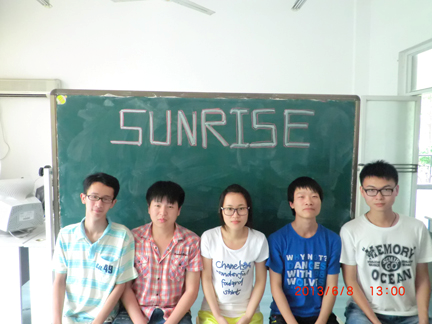 SUNRISE
49
Chameleon
wonderful
feeling
start
DANCE
WITH
WOLVES
MEMORY
OCEAN
2013/6/8 13:00